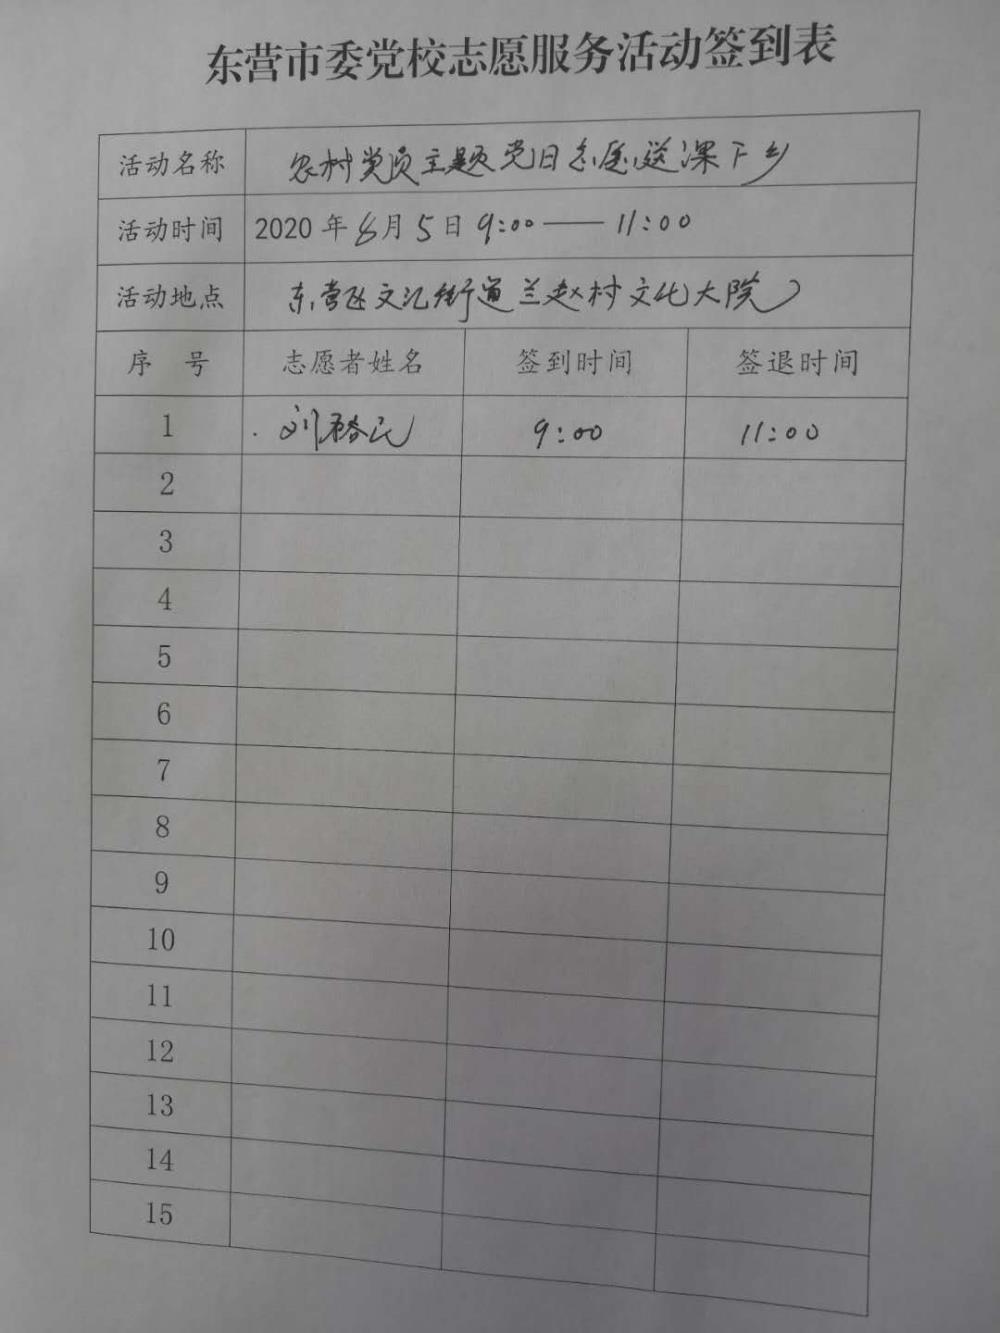 东营市委党校志愿服务活动签到表
活动名称 农村党员主题党日志愿送课下乡
活动时间 2020年8月5日9:00——11:00
活动地点 东营区文汇街道兰赵村文化大院
序号 志愿者姓名 签到时间 签退时间
1 刘民 9:00 11:00
2
3
4
5
6
7
8
9
10
11
12
13
14
15